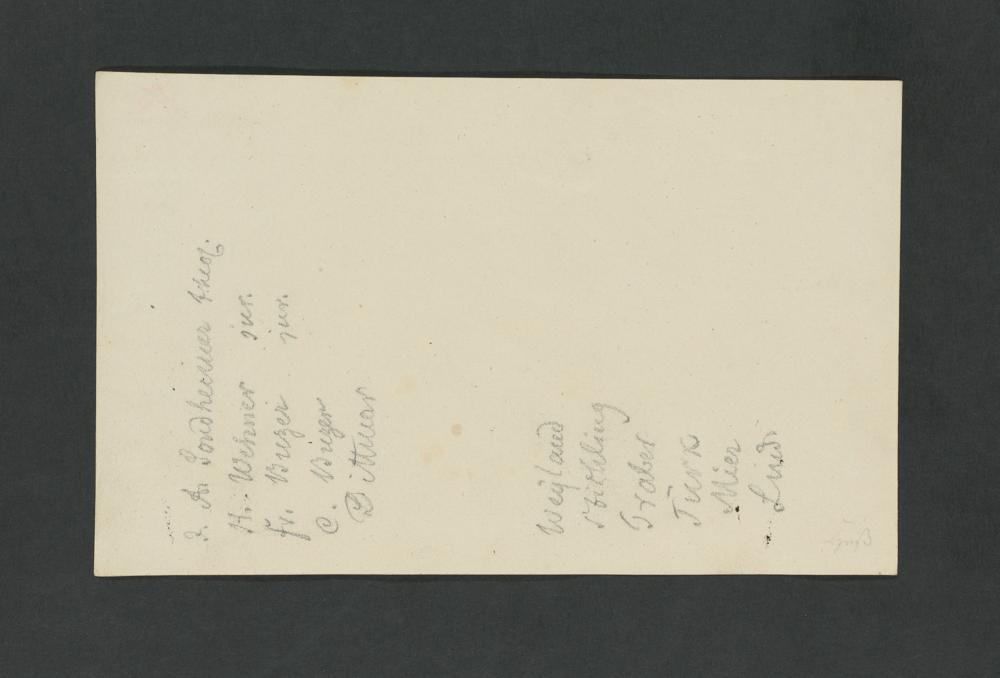 J. A. Sondheimer theol.
H. Wehner jur.
Fr. Buzer jur.
C. Buzer
Dittmar
Weyland
Stichling
Traber
Türk
Mier
Lind